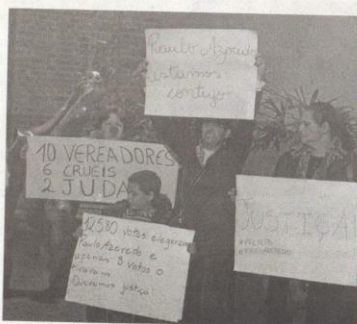 Paulo Azeredo
estamos
contigo
10 VEREADORES
6 CRUEIS
2 JUDA
12.580 votos elegeram
Paulo Azeredo e
apenas 8 votos o
tiraram
Queremos justiça
JUSTIÇA